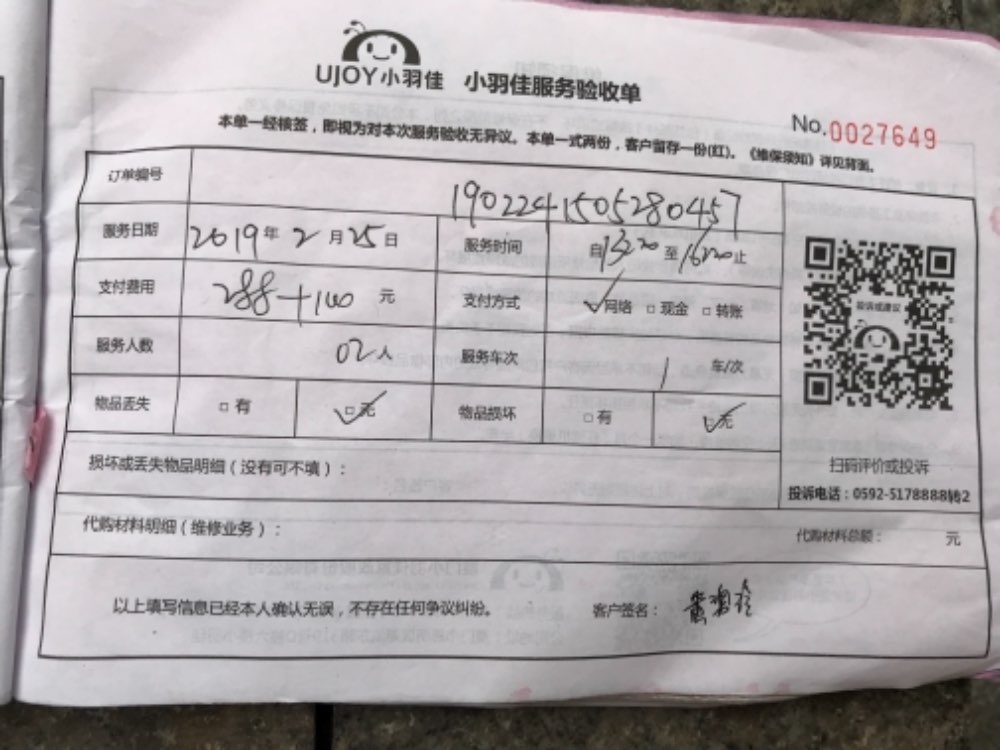 UJOY小羽佳 小羽佳服务验收单
No.0027649
本单一经核签，即视为对本次服务验收无异议。本单一式两份，客户留存一份(红)。《维保须知》详见背面。
订单编号 1902241505280457
服务日期 2019年2月25日 服务时间 自13:20至16:20止
支付费用 288+100 元 支付方式 ✓网络 □现金 □转账
服务人数 02人 服务车次 1 车/次
物品丢失 □有 ☑无 物品损坏 □有 ☑无
投诉或建议
扫码评价或投诉
投诉电话：0592-5178888转2
损坏或丢失物品明细（没有可不填）：
代购材料明细（维修业务）： 代购材料总额： 元
以上填写信息已经本人确认无误，不存在任何争议纠纷。 客户签名：